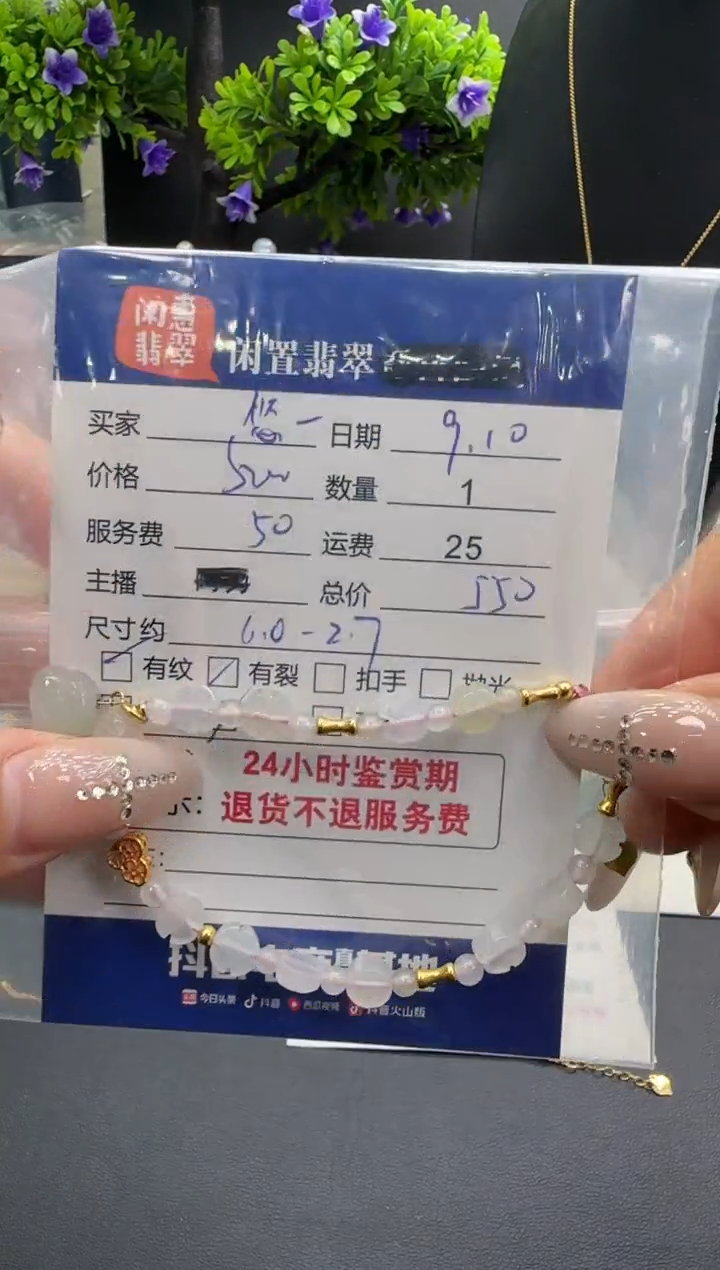 闲置
翡翠
闲置翡翠
买家 日期 9.10
价格 500 数量 1
服务费 50 运费 25
主播 总价 550
尺寸约 6.0-2.7
有纹 有裂 扣手 抛光
24小时鉴赏期
退货不退服务费
今日头条 抖音 西瓜视频 抖音火山版